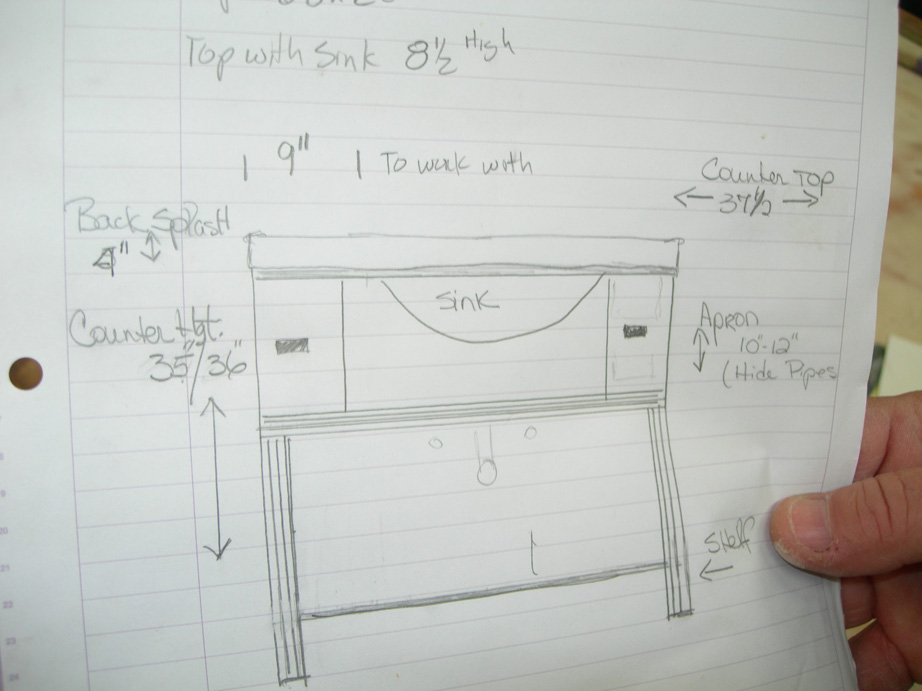 Top with Sink 8½ High
9" To work with
Counter Top
37½
Back Splash
4"
Sink
Counter Hgt.
35"/36"
Apron
10"-12"
(Hide Pipes
Shelf